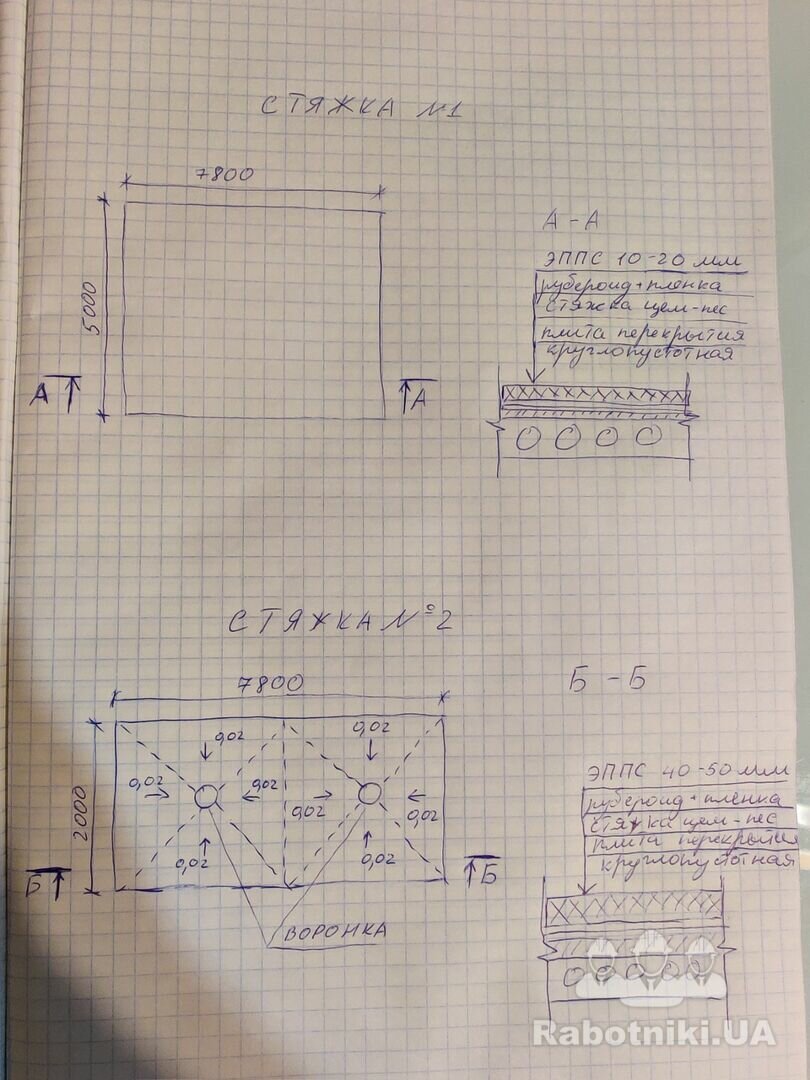 СТЯЖКА №1
7800
5000
А
А
А - А
ЭППС 10-20 мм
рубероид + пленка
стяжка цем-пес
плита перекрытия
круглопустотная
СТЯЖКА №2
7800
2000
0,02
0,02
0,02
0,02
0,02
0,02
0,02
0,02
Б
Б
ВОРОНКА
Б - Б
ЭППС 40-50 мм
рубероид + пленка
стяжка цем-пес
плита перекрытия
круглопустотная
Rabotniki.UA